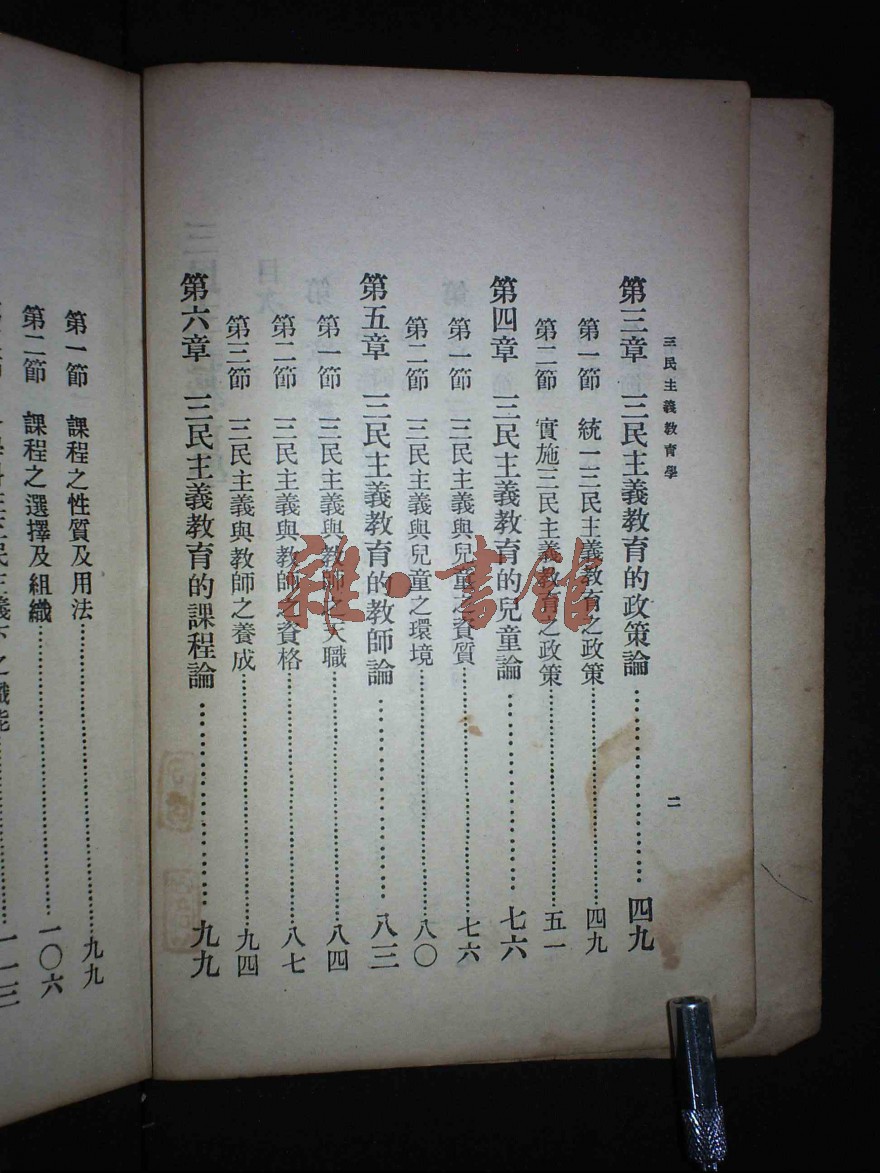 三民主義教育學
二
第三章 三民主義教育的政策論 四九
第一節 統一三民主義教育之政策 四九
第二節 實施三民主義教育之政策 五一
第四章 三民主義教育的兒童論 七六
第一節 三民主義與兒童之資質 七六
第二節 三民主義與兒童之環境 八〇
第五章 三民主義教育的教師論 八三
第一節 三民主義與教師之天職 八四
第二節 三民主義與教師之資格 八七
第三節 三民主義與教師之養成 九四
第六章 三民主義教育的課程論 九九
第一節 課程之性質及用法 九九
第二節 課程之選擇及組織 一〇六
民主義下之職能
雜·書館